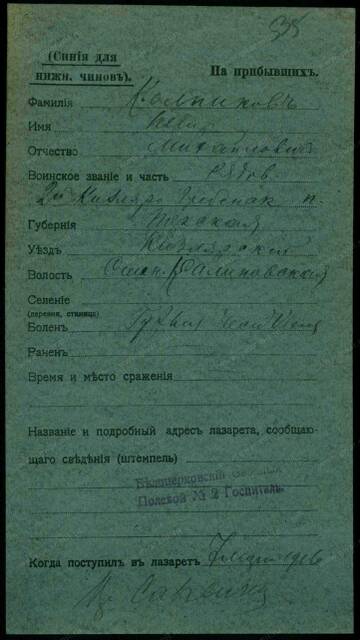 35
(Синія для
нижн. чиновъ).
На прибывшихъ.
Фамилія Калпиковъ
Имя
Отчество Михайловичъ
Воинское званіе и часть Рядов.
2й Кизляро Гребенск п.
Губернія Терская
Уѣздъ Кизлярскій
Волость Стан. Калиновская
Селеніе
(деревня, станица)
Боленъ
Раненъ
Время и мѣсто сраженія
Названіе и подробный адресъ лазарета, сообщаю-
щаго свѣдѣнія (штемпель)
Бѣлицерковскій
Полевой № 2 Госпиталь.
Когда поступилъ въ лазаретъ